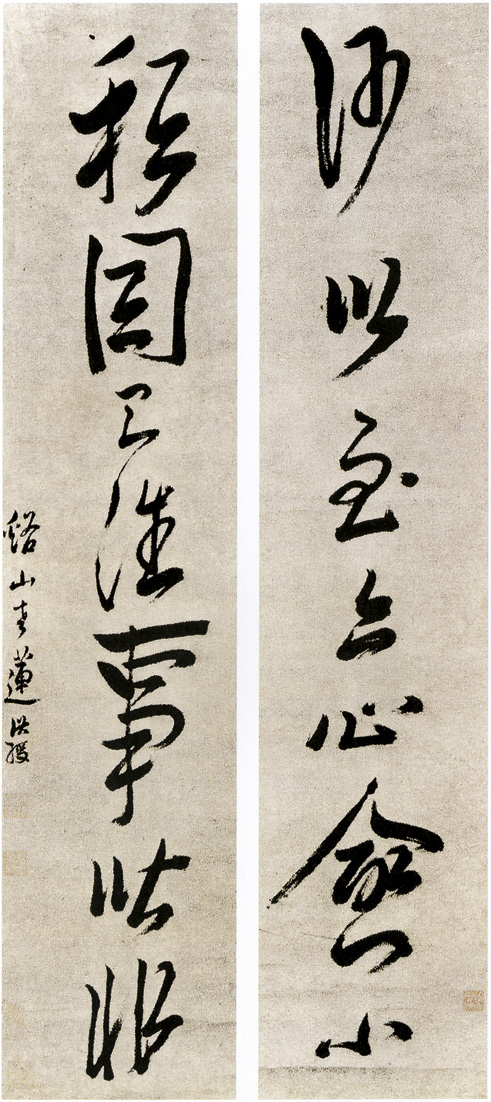 何以至今心愈小
秪因已往事皆非
谿山老蓮洪綬